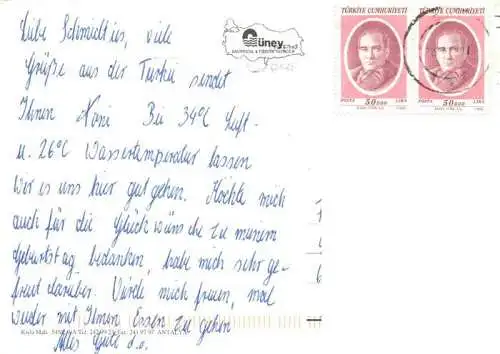 Liebe Schmidt us, viele
Grüße aus der Türkei sendet
Ihnen Bei 34°C Luft-
u. 26°C Wassertemperatur lassen
wir es uns hier gut gehen. Möchte mich
auch für die Glückwünsche zu meinem
Geburtstag bedanken, habe mich sehr ge-
freut darüber. Würde mich freuen, mal
wieder mit Ihnen Essen zu gehen
Alles Gute
Güney
TÜRKİYE CUMHURİYETİ
POSTA 50 000 LİRA
TÜRKİYE CUMHURİYETİ
POSTA 50 000 LİRA